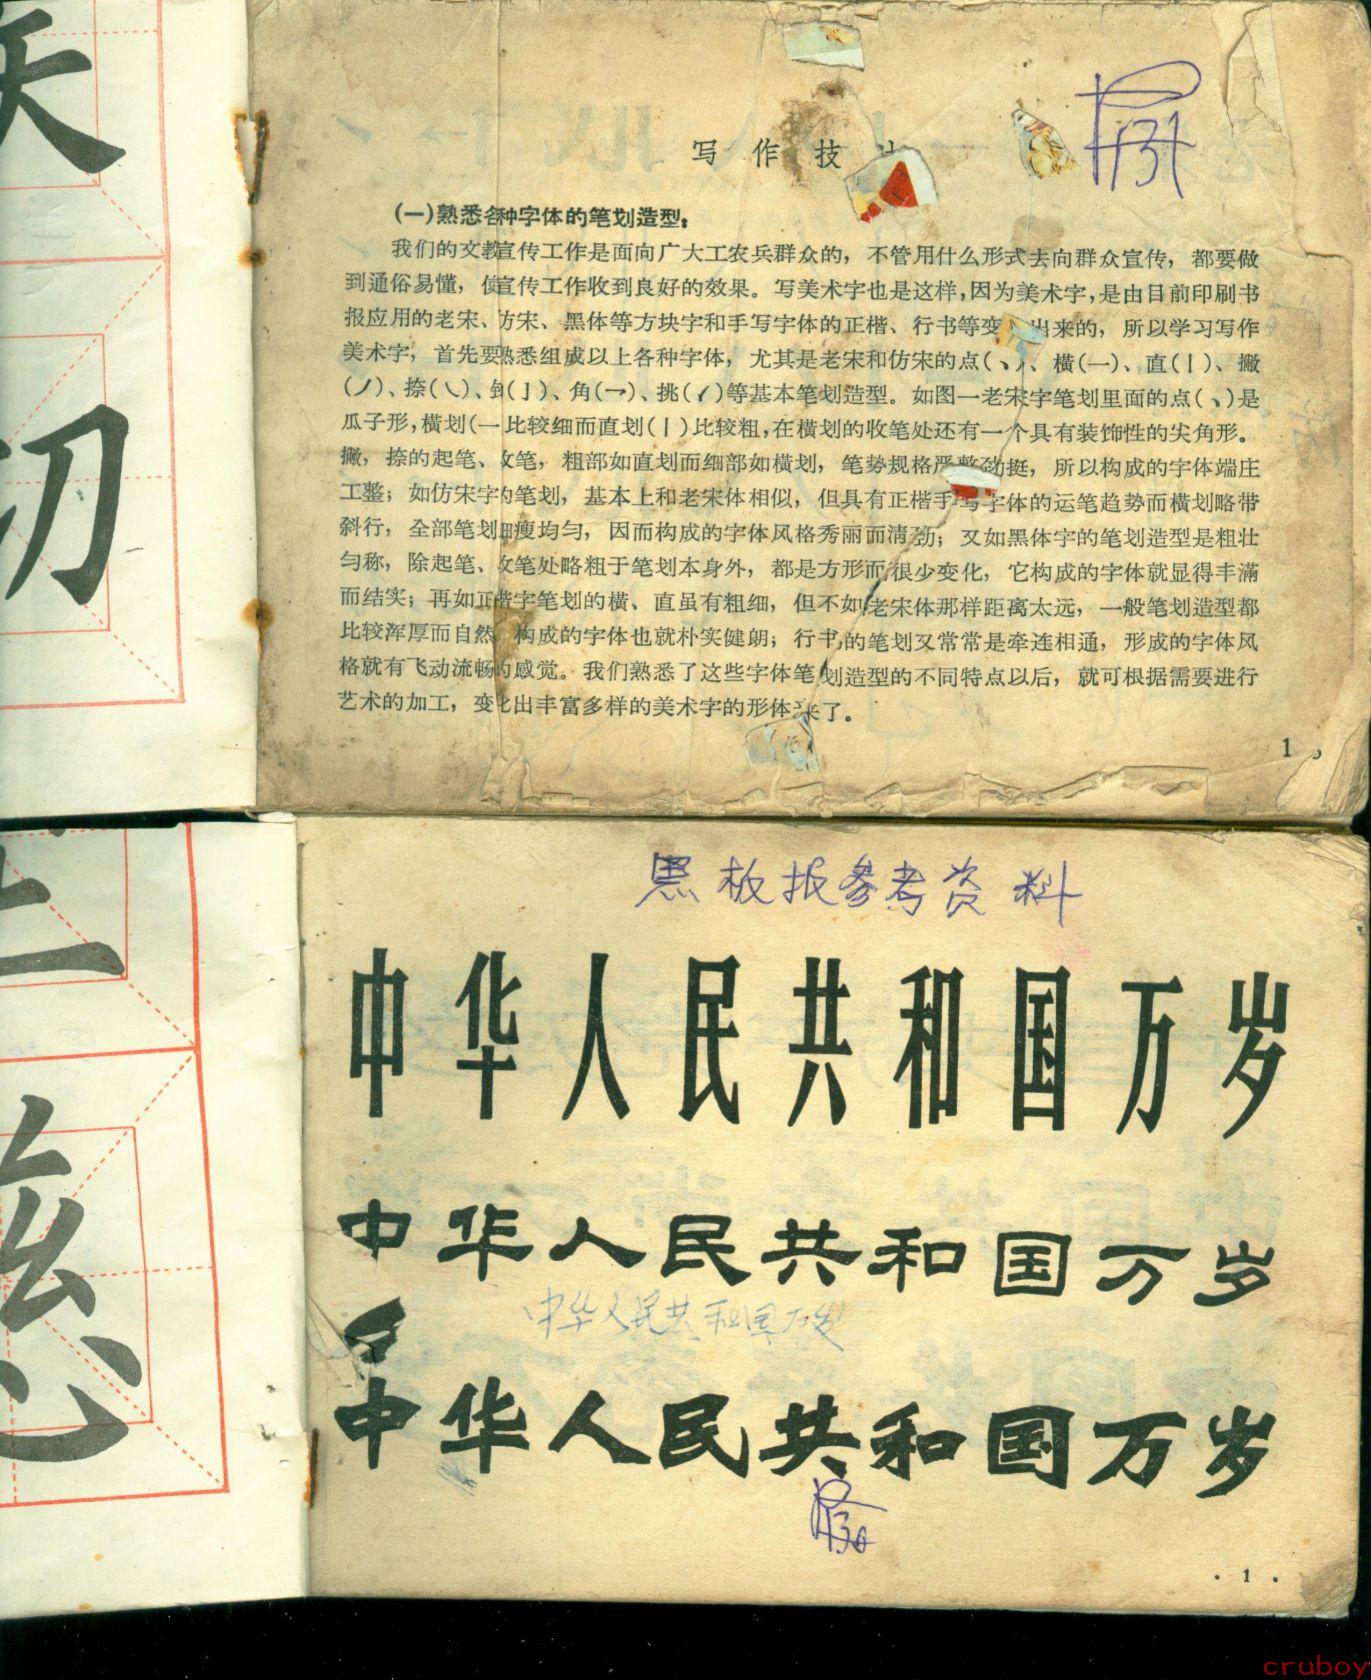 写作技
(一)熟悉各种字体的笔划造型:
我们的文教宣传工作是面向广大工农兵群众的，不管用什么形式去向群众宣传，都要做
到通俗易懂，使宣传工作收到良好的效果。写美术字也是这样，因为美术字，是由目前印刷书
报应用的老宋、仿宋、黑体等方块字和手写字体的正楷、行书等变 出来的，所以学习写作
美术字，首先要熟悉组成以上各种字体，尤其是老宋和仿宋的点(丶)、横(一)、直(丨)、撇
(丿)、捺(㇏)、钩(亅)、角(㇕)、挑(㇀)等基本笔划造型。如图一老宋字笔划里面的点(丶)是
瓜子形，横划(一 比较细而直划(丨)比较粗，在横划的收笔处还有一个具有装饰性的尖角形。
撇，捺的起笔、收笔，粗部如直划而细部如横划，笔势规格严整劲挺，所以构成的字体端庄
工整；如仿宋字的笔划，基本上和老宋体相似，但具有正楷手写字体的运笔趋势而横划略带
斜行，全部笔划细瘦均匀，因而构成的字体风格秀丽而清劲；又如黑体字的笔划造型是粗壮
匀称，除起笔、收笔处略粗于笔划本身外，都是方形而很少变化，它构成的字体就显得丰满
而结实；再如正楷字笔划的横、直虽有粗细，但不如老宋体那样距离太远，一般笔划造型都
比较浑厚而自然，构成的字体也就朴实健朗；行书的笔划又常常是牵连相通，形成的字体风
格就有飞动流畅的感觉。我们熟悉了这些字体笔划造型的不同特点以后，就可根据需要进行
艺术的加工，变化出丰富多样的美术字的形体来了。
1
切
黑板报参考资料
中华人民共和国万岁
中华人民共和国万岁
中华人民共和国万岁
中华人民共和国万岁
·1·
cruboy